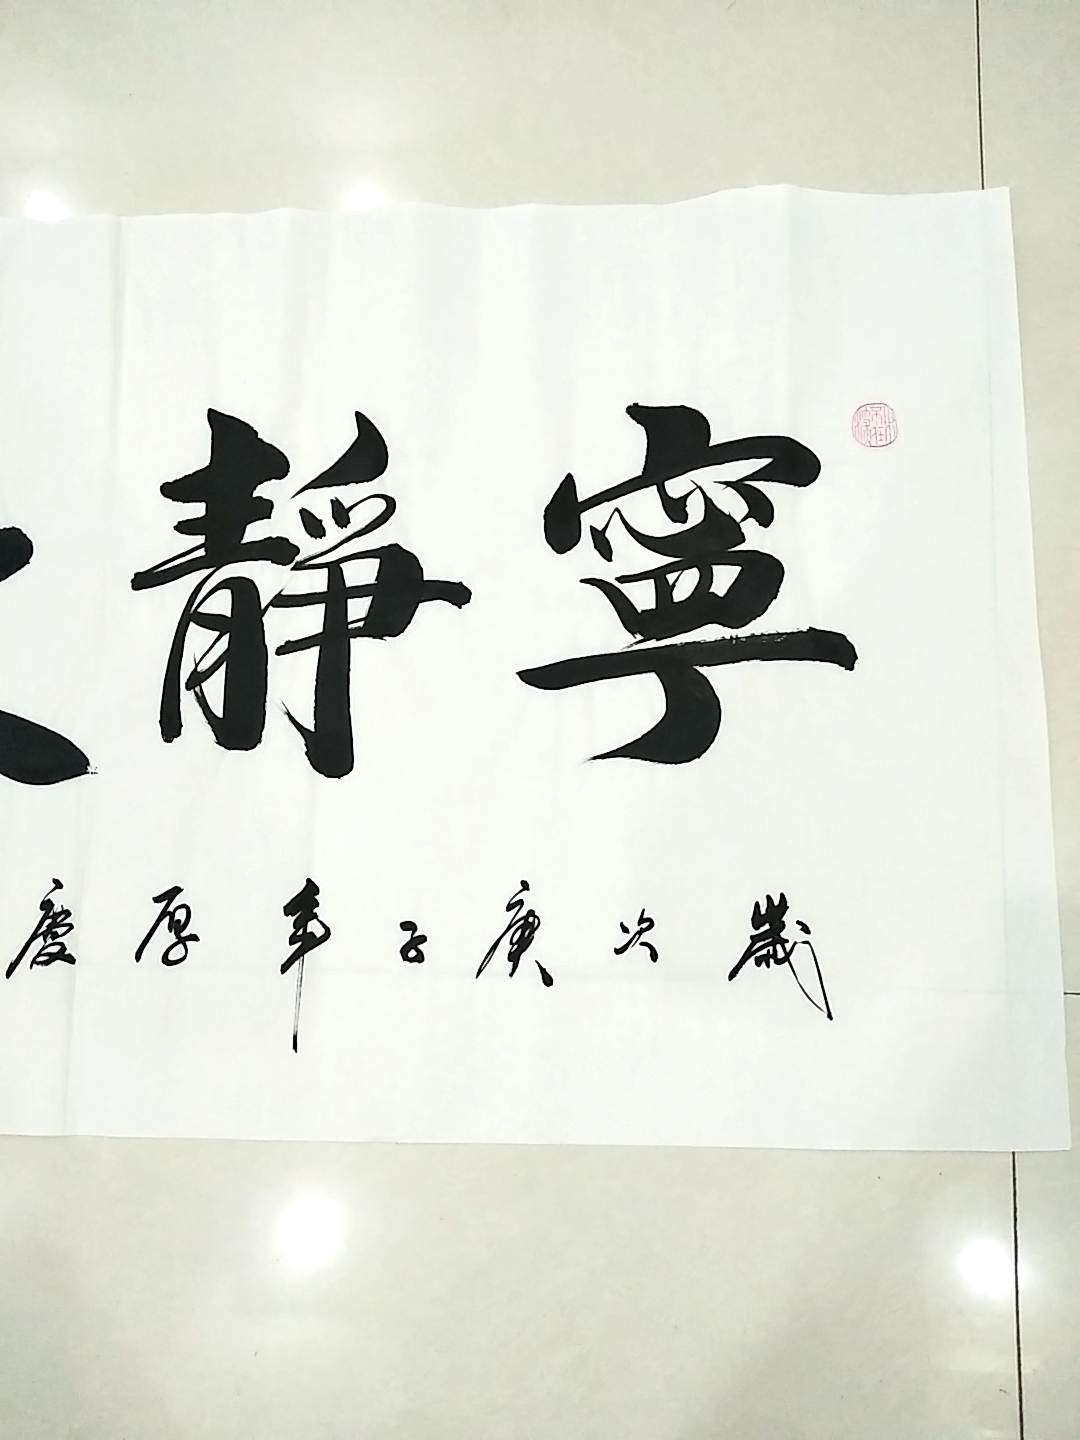 寧靜
歲次庚子年厚慶